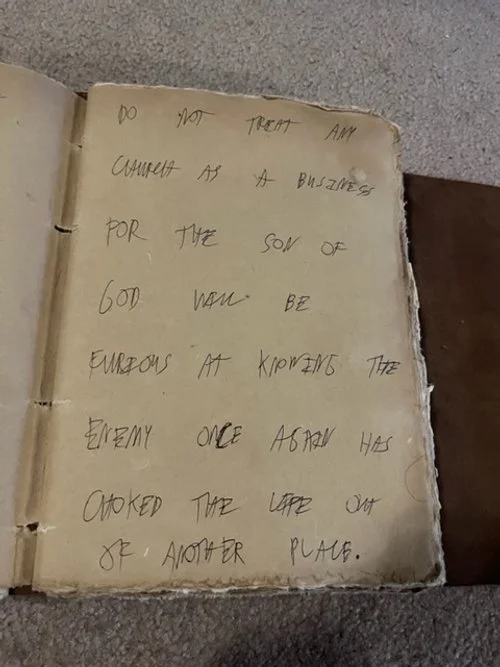 DO NOT TREAT ANY
CHURCH AS A BUSINESS
FOR THE SON OF
GOD WILL BE
FURIOUS AT KNOWING THE
ENEMY ONCE AGAIN HAS
CHOKED THE LIFE OUT
OF ANOTHER PLACE.